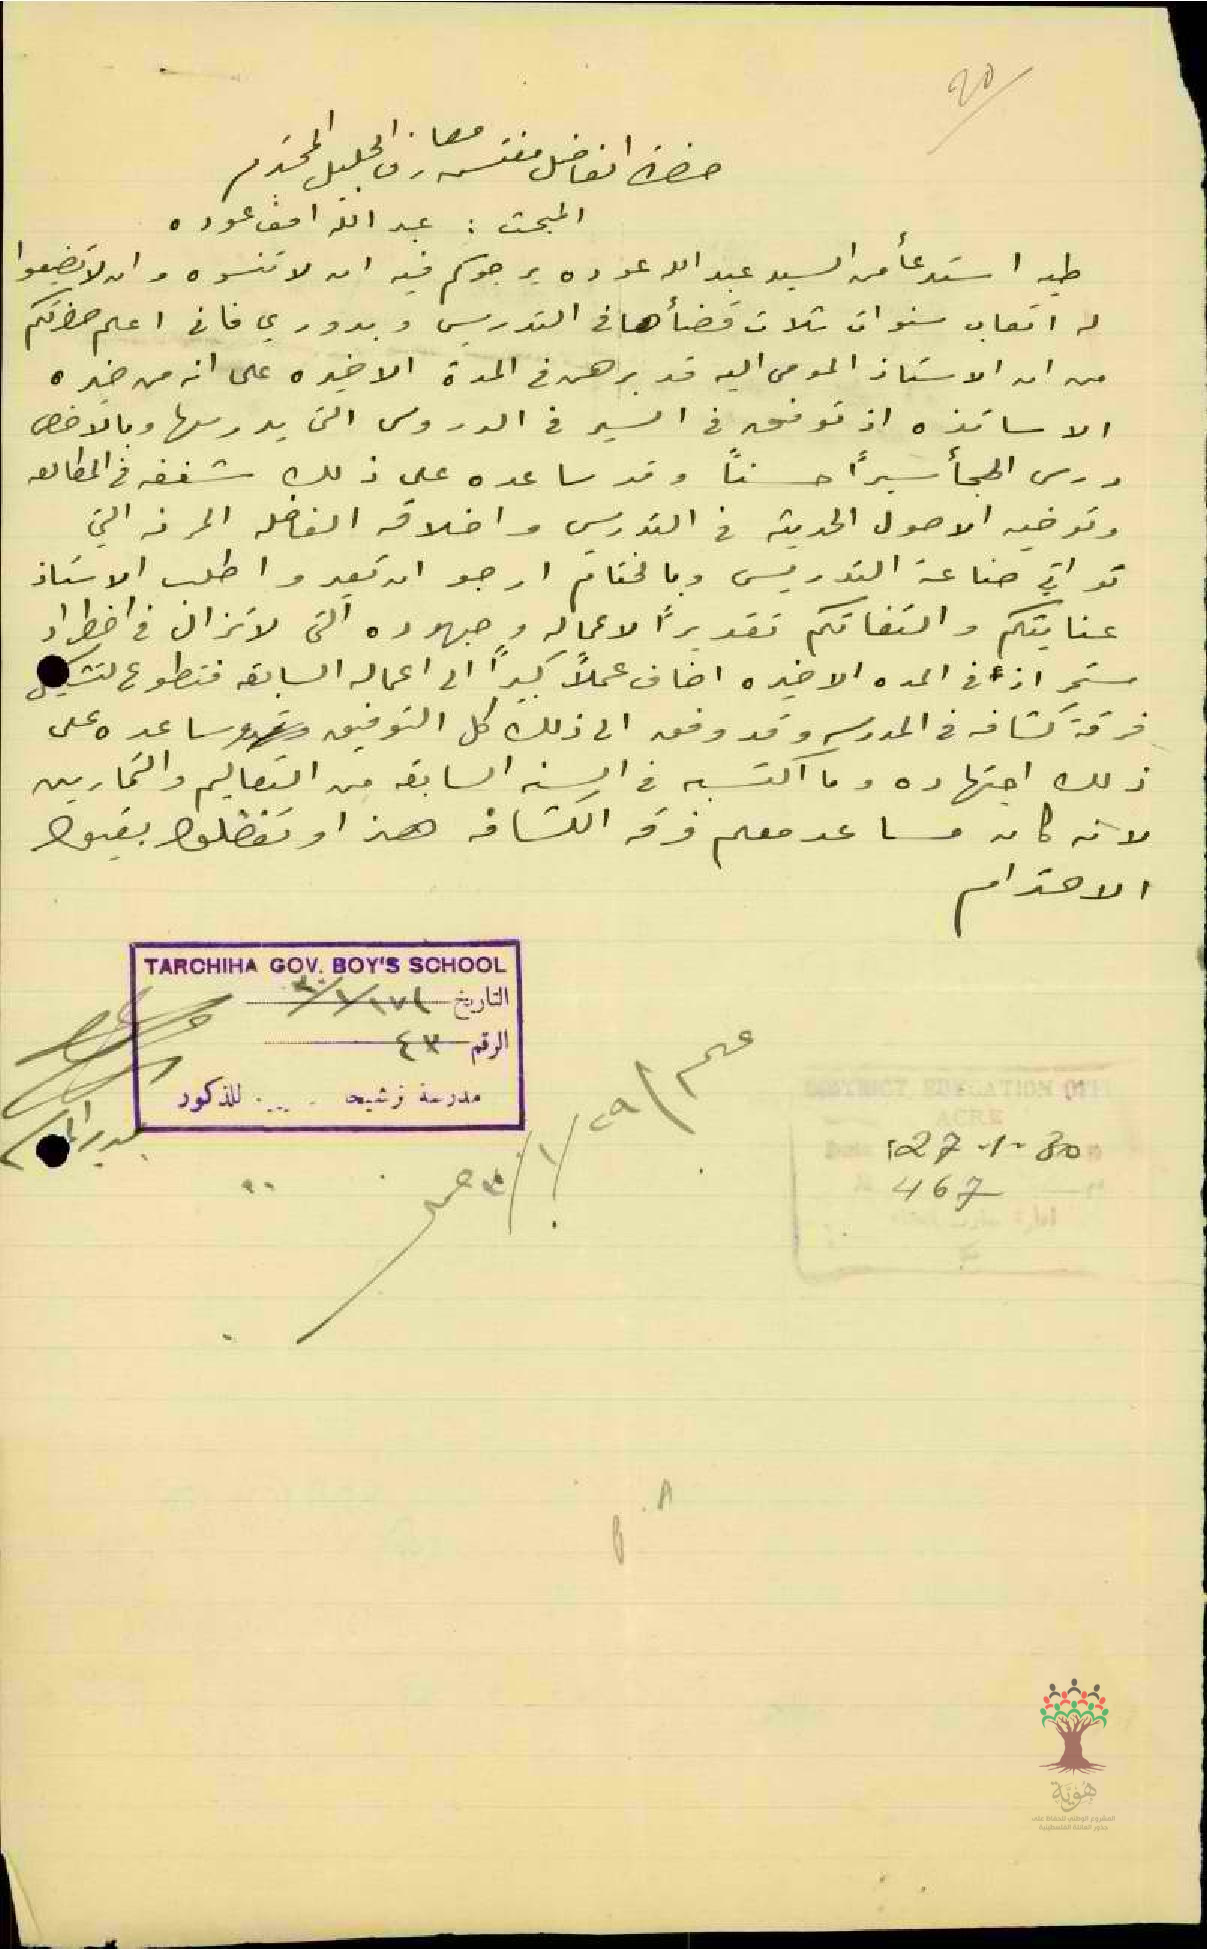 ٩٥
حضرة الفاضل مفتش معارف الجليل المحترم
المبحث : عبد الله امين عوده
طيه استدعأ من السيد عبد الله عوده يرجوكم فيه ان لا تنسوه وان لا تضيعوا
له اتعاب سنوات ثلاث قضأها في التدريس وبدوري فاني اعلم حضرتكم
من ان الاستاذ المومى اليه قد برهن في المدة الاخيره على انه من خيره
الاساتذه اذ توفق في السير في الدروس التي يدرسها وبالاخص
درس الهجأ سيراً حسناً وقد ساعده على ذلك شغفه في المطالعه
وتوخيه الاصول الحديثه في التدريس واخلاقه الفاضله المرنه التي
تواتي صناعة التدريس وبالختام ارجو ان تعيروا طلب الاستاذ
عنايتكم والتفاتكم تقديراً لاعماله وجهوده التي لا تزال في اضطراد
ستمر اذ في المده الاخيره اضاف عملاً كبيراً الى اعماله السابقه فتطوع لتشكيل
فرقة كشافه في المدرسه وقد وفق الى ذلك كل التوفيق ساعده على
ذلك اجتهاده وما اكتسبه في السنه السابقه من التعاليم والتمارين
لانه كان مساعد معلم فرقه الكشافه هذا وتفضلوا بقبول
الاحترام
TARCHIHA GOV. BOY'S SCHOOL
التاريخ
الرقم ٤٣
مدرسة ترشيحا للذكور
مدير
DISTRICT EDUCATION OFFI
ACRE
Date 27-1-30
467
A
هُويّة
المشروع الوطني للحفاظ على
جذور العائلة الفلسطينية